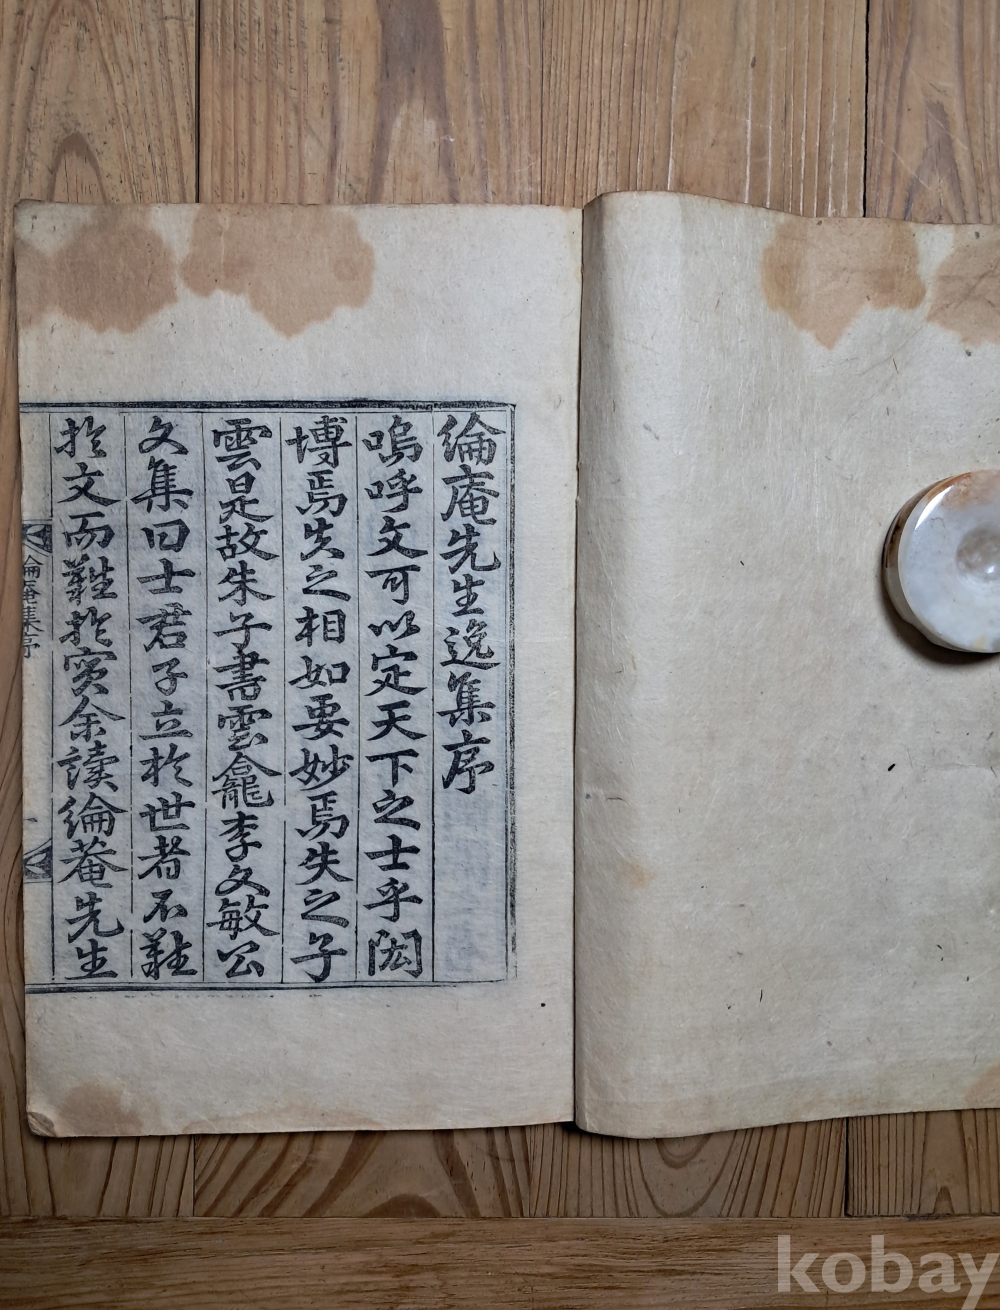 綸庵先生逸集序
嗚呼文可以定天下之士乎閎
博焉失之相如要妙焉失之子
雲是故朱子書雲龕李文敏公
文集曰士君子立於世者不難
於文而難於實余讀綸菴先生
綸庵集序
kobay